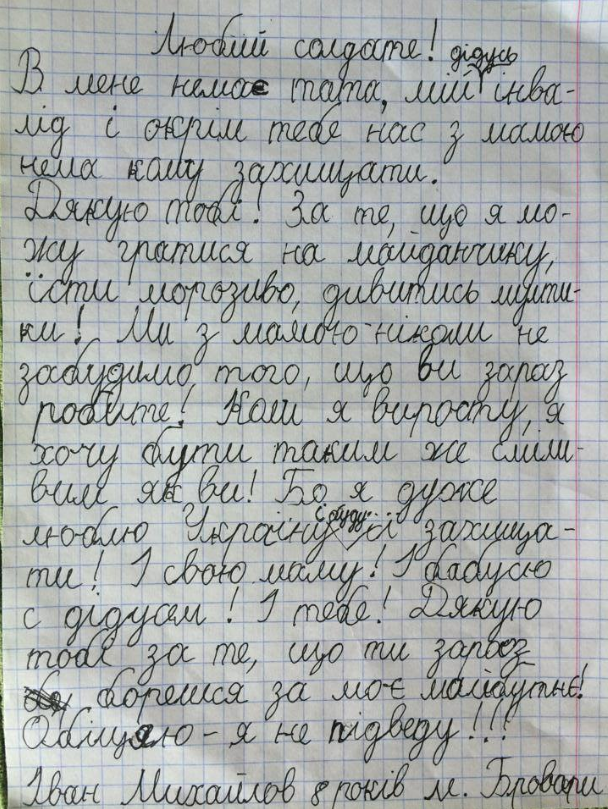 Любий солдате!
дідусь
В мене немає тата, мій інва-
лід і окрім тебе нас з мамою
нема кому захищати.
Дякую тобі! За те, що я мо-
жу гратися на майданчику,
їсти морозиво, дивитись мульти-
ки! Ми з мамою ніколи не
забудимо того, що ви зараз
робите! Коли я виросту, я
хочу бути таким же сміли-
вим як ви! Бо я дуже
і буду
люблю Україну її захища-
ти! І свою маму! І бабусю
с дідусям! І тебе! Дякую
тобі за те, що ти зараз
борешся за моє майбутнє!
Обіцяю - я не підведу!!!
Іван Михайлов 8 років м. Бровари